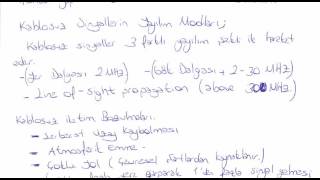 Kablosuz Sinyallerin Yayılım Modları;
Kablosuz sinyaller 3 farklı yayılım şekli ile hareket
eder.
-(Yer Dalgası 2 MHz) -(Gök Dalgası + 2-30 MHz)
- Line of-sight propagation (above 30 MHz)
Kablosuz iletim Bozulmaları.
- Serbest Uzay Kaybolması
- Atmosferik Emme -
- Çoklu yol ( Çevresel şartlardan kaynaklanır.)
yaparak 1'den fazla sinyal gelmesi